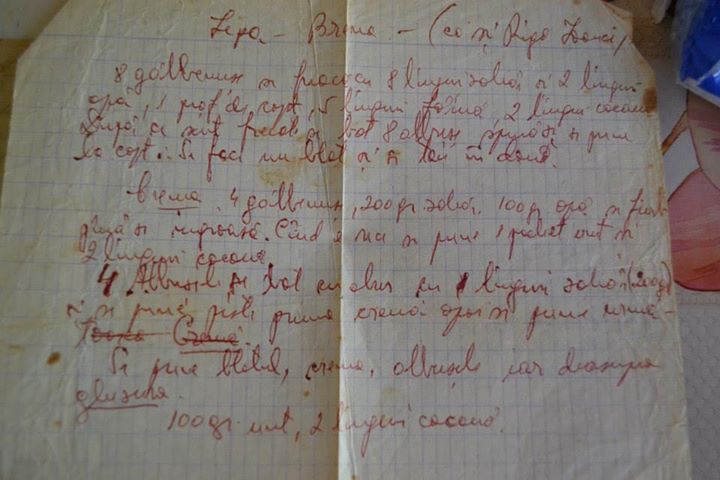 Lepa - Brena - (ca și Rigo Ianci)
8 gălbenuș se freacă cu 8 linguri zahăr și 2 linguri
apă, 1 praf de copt, 5 linguri făină, 2 linguri cacao.
După ce sunt frecate se bat 8 albuș spumă și se pune
la copt. Se face un blat și se taie în două.
Crema 4 gălbenuș, 200 gr zahăr, 100 gr apă se fierb
până se îngroașă. Când e rece se pune 1 pachet unt și
2 linguri cacao
4 Albușele se bat cu abur cu linguri zahăr (200g)
și se pune peste prima cremă apoi se pune
Se pune blatul, crema, albușele iar deasupra
glazura.
100 gr. unt, 2 linguri cacao.